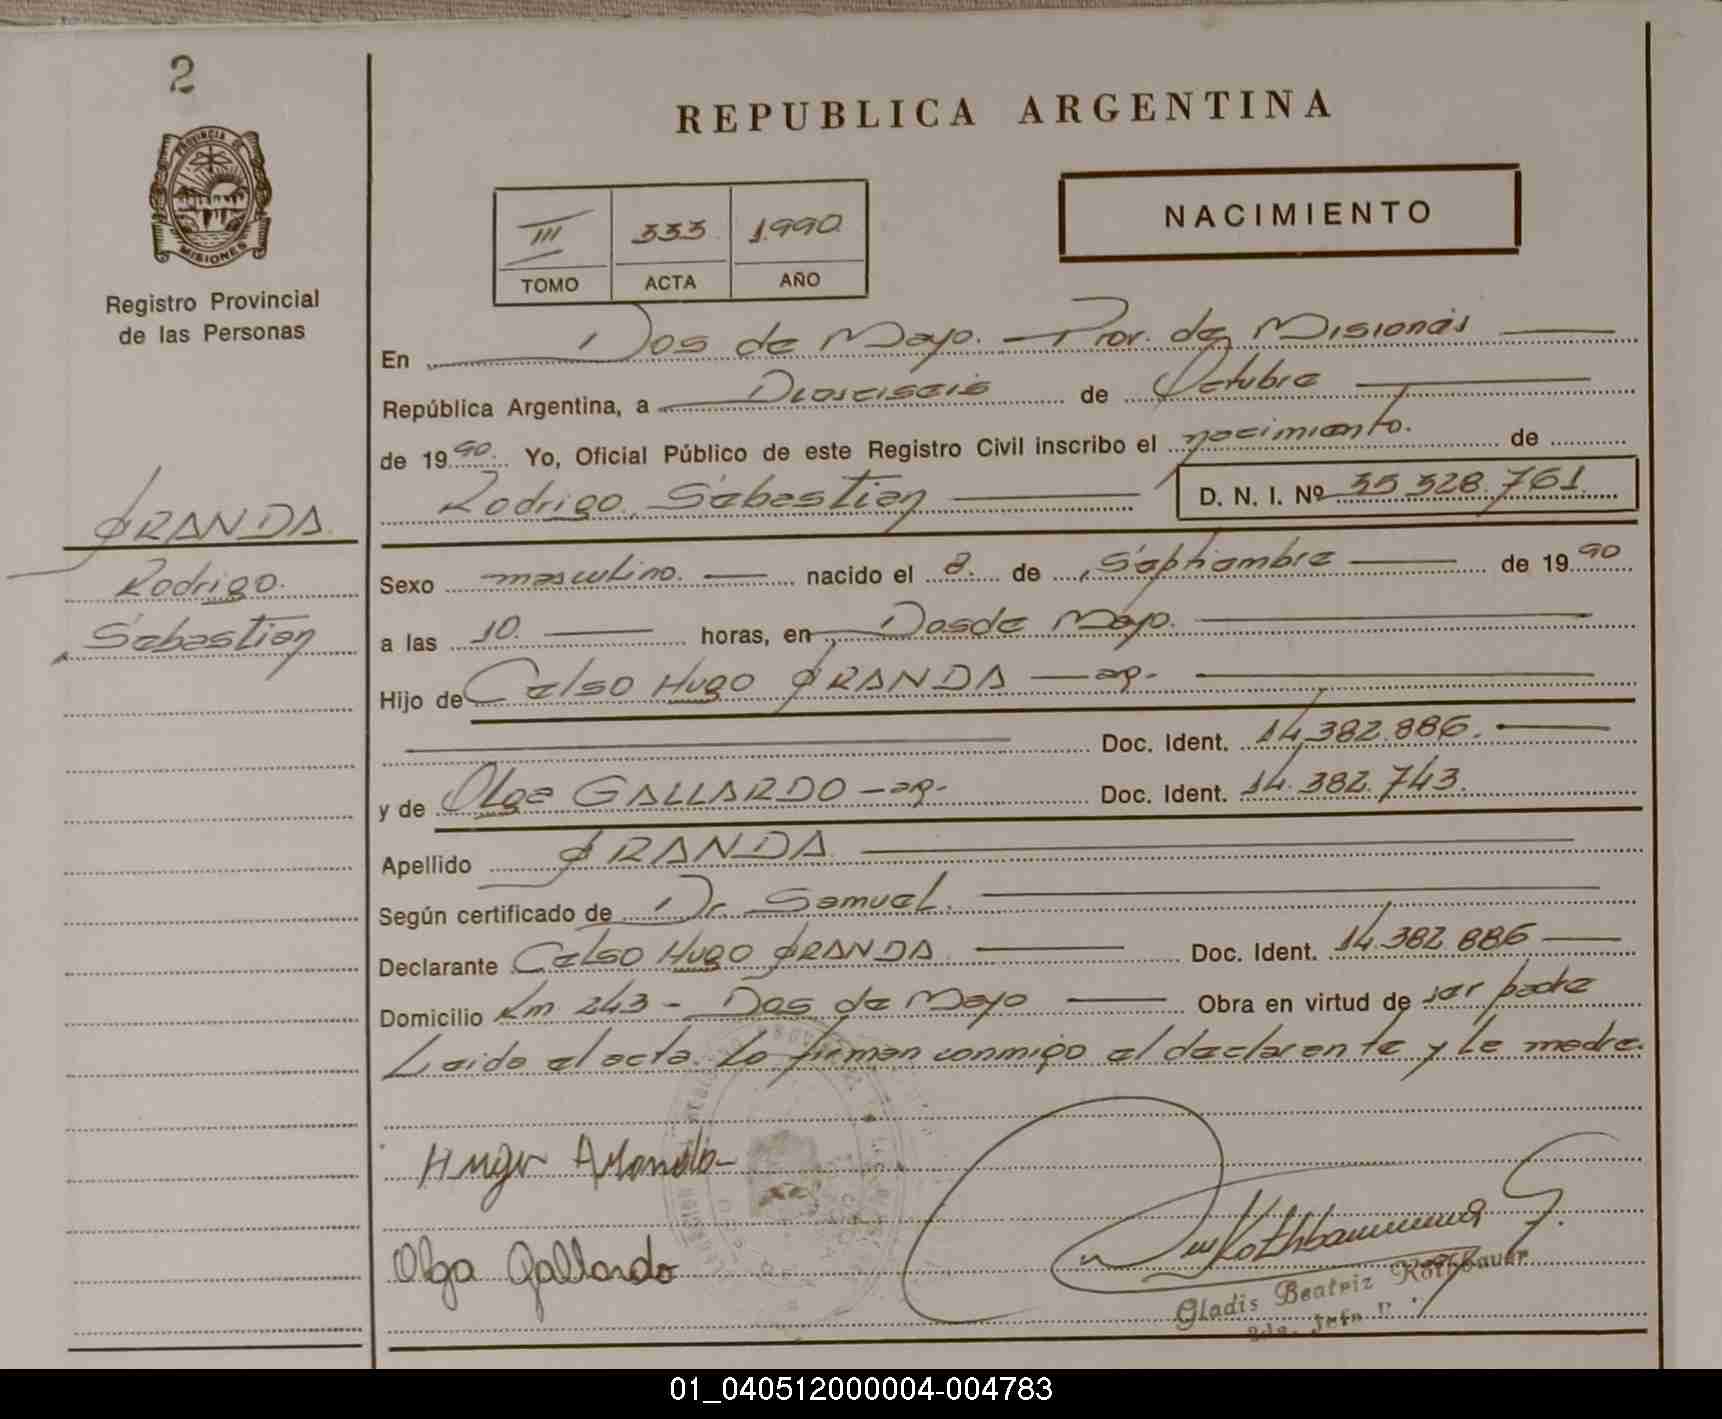 2
PROVINCIA DE
MISIONES
Registro Provincial
de las Personas
ARANDA
Rodrigo
Sebastian
REPUBLICA ARGENTINA
III 333 1.990
TOMO ACTA AÑO
NACIMIENTO
En Dos de Mayo. Prov. de Misiones
República Argentina, a Dieciseis de Octubre
de 1990. Yo, Oficial Público de este Registro Civil inscribo el nacimiento. de
Rodrigo Sebastian D. N. I. Nº 35.328.761.
Sexo masculino. nacido el 8. de Septiembre de 1990
a las 10. horas, en Dos de Mayo.
Hijo de Celso Hugo ARANDA - ar.-
Doc. Ident. 14.382.886.
y de Olga GALLARDO - ar.- Doc. Ident. 14.382.743.
Apellido ARANDA
Según certificado de Dr. Samuel.
Declarante Celso Hugo ARANDA Doc. Ident. 14.382.886
Domicilio Km 243 - Dos de Mayo Obra en virtud de ser padre
Leida el acta. Lo firman conmigo el declarante y la madre.
Hugo Aranda
Olga Gallardo
Gladis Beatriz Rothbauer
01_040512000004-004783